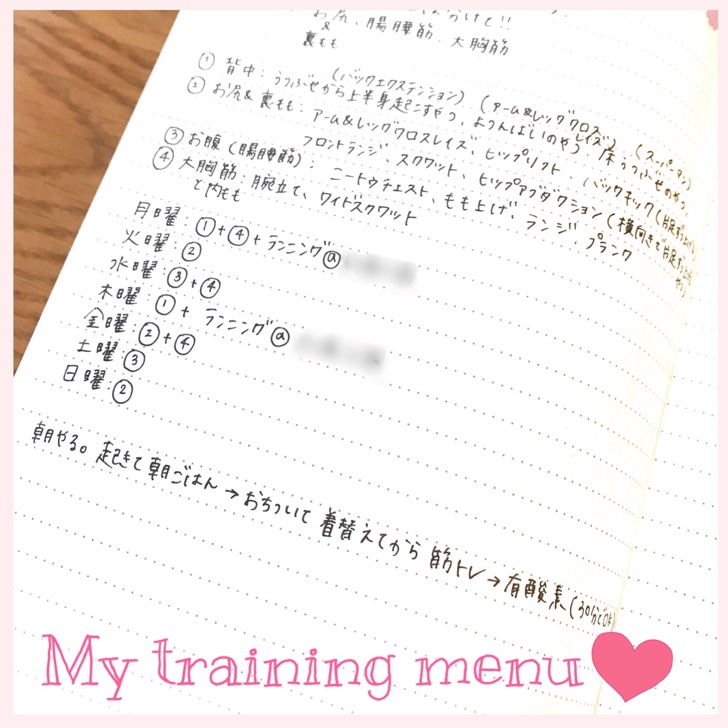 お尻、腸腰筋、大胸筋
&
裏もも
① 背中:うつぶせから上半身起こすやつ、よつんばいのやつ、床うつぶせのやつ、
(バックエクステンション)(アーム&レッグクロスレイズ)(スーパーマン)
② お尻&裏もも:アーム&レッグクロスレイズ、ヒップリフト、バックキック
フロントランジ、スクワット、ヒップアブダクション(横向きで
③ お腹(腸腰筋):ニートゥチェスト、もも上げ、ランジ、プランク
④ 大胸筋:腕立て、ワイドスクワット
と内もも
月曜:①+④+ランニング@
火曜:②
水曜:③+④
木曜:①+ランニング@
金曜:②+④
土曜:③
日曜:②
朝やる。起きて朝ごはん→おちついて着替えてから筋トレ→有酸素(30分でOK
My training menu